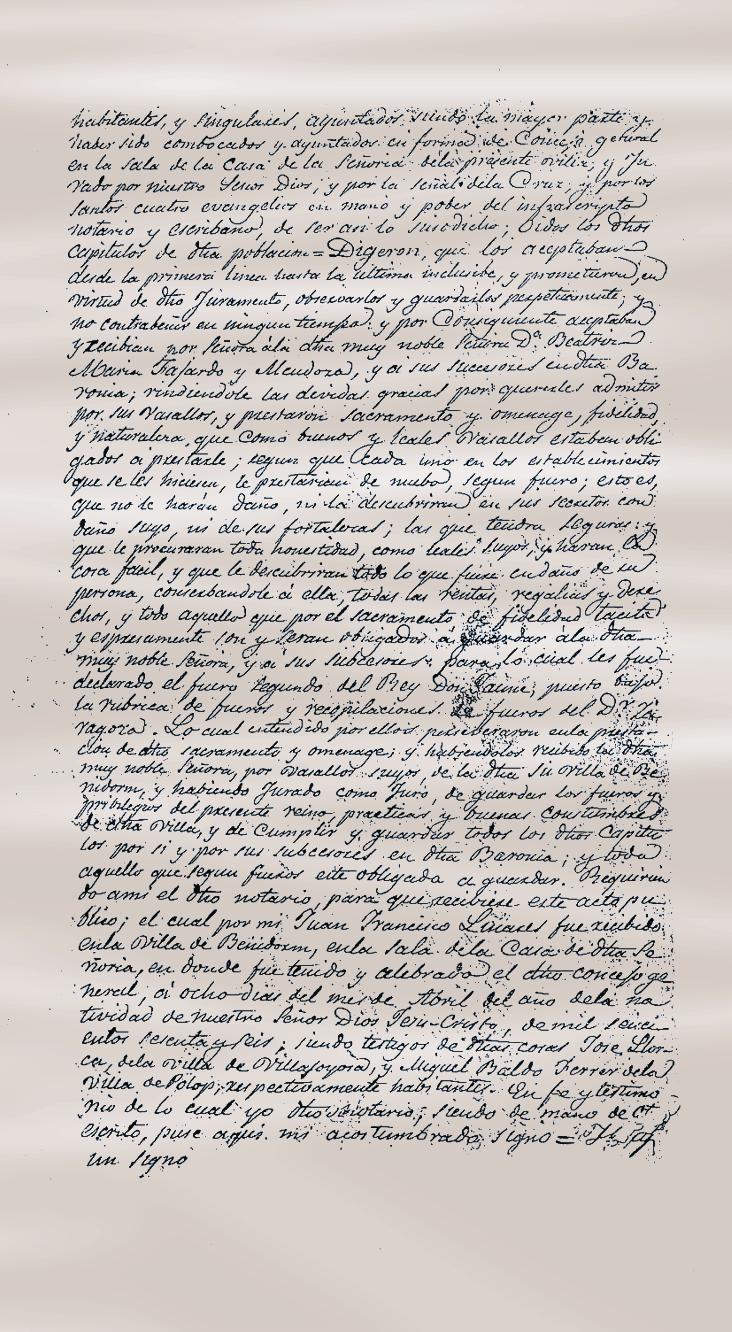 habitantes, y singulares, ayuntados siendo la mayor parte y
haber sido combocados y ayuntados en forma de Concejo general
en la sala de la Casa de la Señoria dela presente villa; y Ju
rado por nuestro Señor Dios, y por la señal dela Cruz, y por los
santos cuatro evangelios en mano y poder del infrascripto
notario y escribano, de ser ari lo suscdicho; Oidos los dhos
capitulos de dha poblacion = Digeron, que los aceptaban
desde la primera linea hasta la ultima inclusibe, y prometieron, en
virtud de dho Juramento, observarlos y guardarlos perpetuamente; y
no contrabenir en ningun tiempo: y por Consiguiente aceptaban
y recibian por Señora ála dha muy noble Señora Dª. Beatriz
Maria Fajardo y Mendoza, y a sus sucesores en dha Ba
ronia; rindiendole las devidas gracias por quererles admitir
por sus Vasallos, y prestaron sacramento y omenage, fidelidad,
y naturaleza, que como buenos y leales Vasallos estaban obli
gados a prestarle; segun que cada uno en los establecimientos
que se les hiciesen, le prestarian de nuebo, segun fuero; esto es,
que no le harán daño, ni la descubriran en sus secretos con
daño suyo, ni de sus fortalezas; las que tendra seguras: y
que le procuraran toda honestidad, como leales suyos, y haran la
cosa facil, y que le descubriran todo lo que fuese en daño de su
persona, conserbandole á ella, todas las rentas, regalias y dere
chos, y todo aquello que por el sacramento de fidelidad tacita
y espresamente son y seran obligados á guardar ala dha
muy noble Señora, y a sus subcesores, para lo cual les fue
declarado el fuero segundo del Rey Don Jaume, puesto bajo
la rubrica de fueros y recopilaciones de fueros del Dr. Za
ragoza. Lo cual entendido por ellos perseveraron en la presta-
cion de dho sacramento y omenage; y habiendolos recibido la dha
muy noble Señora, por Vasallos suyos, de la dha su Villa de Be
nidorm, y habiendo Jurado como Juro, de guardar los fueros y
pribilegios del presente reino, practicas y buenas constumbres
de dha Villa, y de Cumplir y guardar todos los dhos Capitu
los por si y por sus subcesores en dha Baronia; y todo
aquello que segun fueros esté obligada a guardar. Requirien
do ami el dho notario, para que recibiese este acto pu
blico; el cual por mi Juan Francisco Linares fue recibido
en la Villa de Benidorm, en la sala dela Casa de dha Se
ñoria, en donde fue tenido y celebrado el dho concejo ge
neral, á ocho dias del mes de Abril del año dela na
tividad de nuestro Señor Dios Jesu-Cristo, de mil seisci
entos sesenta y seis; siendo testigos de dhas cosas Jose Llor-
ca, dela Villa de Villajoyosa, y Miguel Baldo Ferrer dela
Villa de Polop, respectivamente habitantes. En fe y testimo
nio de lo cual yo dho notario; siendo de mano de
escrito, puse aqui mi acostumbrado signo =
un signo